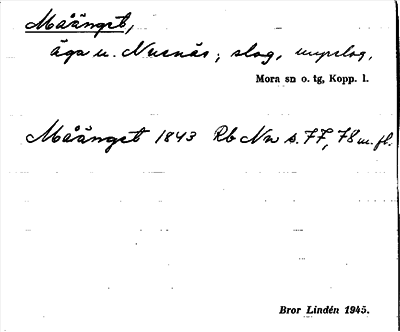 Måänget,
äga u. Nusnäs; slog, myrslog,
Mora sn o. tg, Kopp. l.
Måänget 1843 Rb Nn s. 77, 78 m. fl.
Bror Lindén 1945.